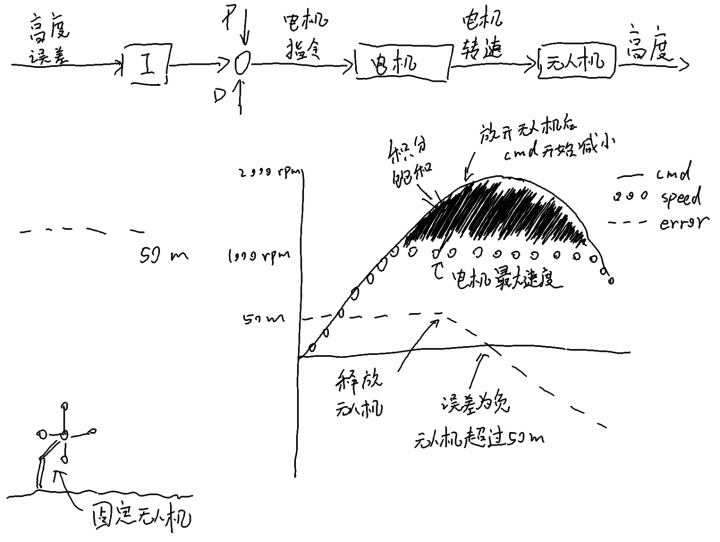 高度
误差
I
P
D
电机
指令
电机
电机
转速
无人机
高度
50 m
2000 rpm
1000 rpm
50 m
积分
饱和
放开无人机后
cmd开始减小
cmd
speed
error
电机最大速度
释放
无人机
误差为负
无人机超过50m
固定无人机